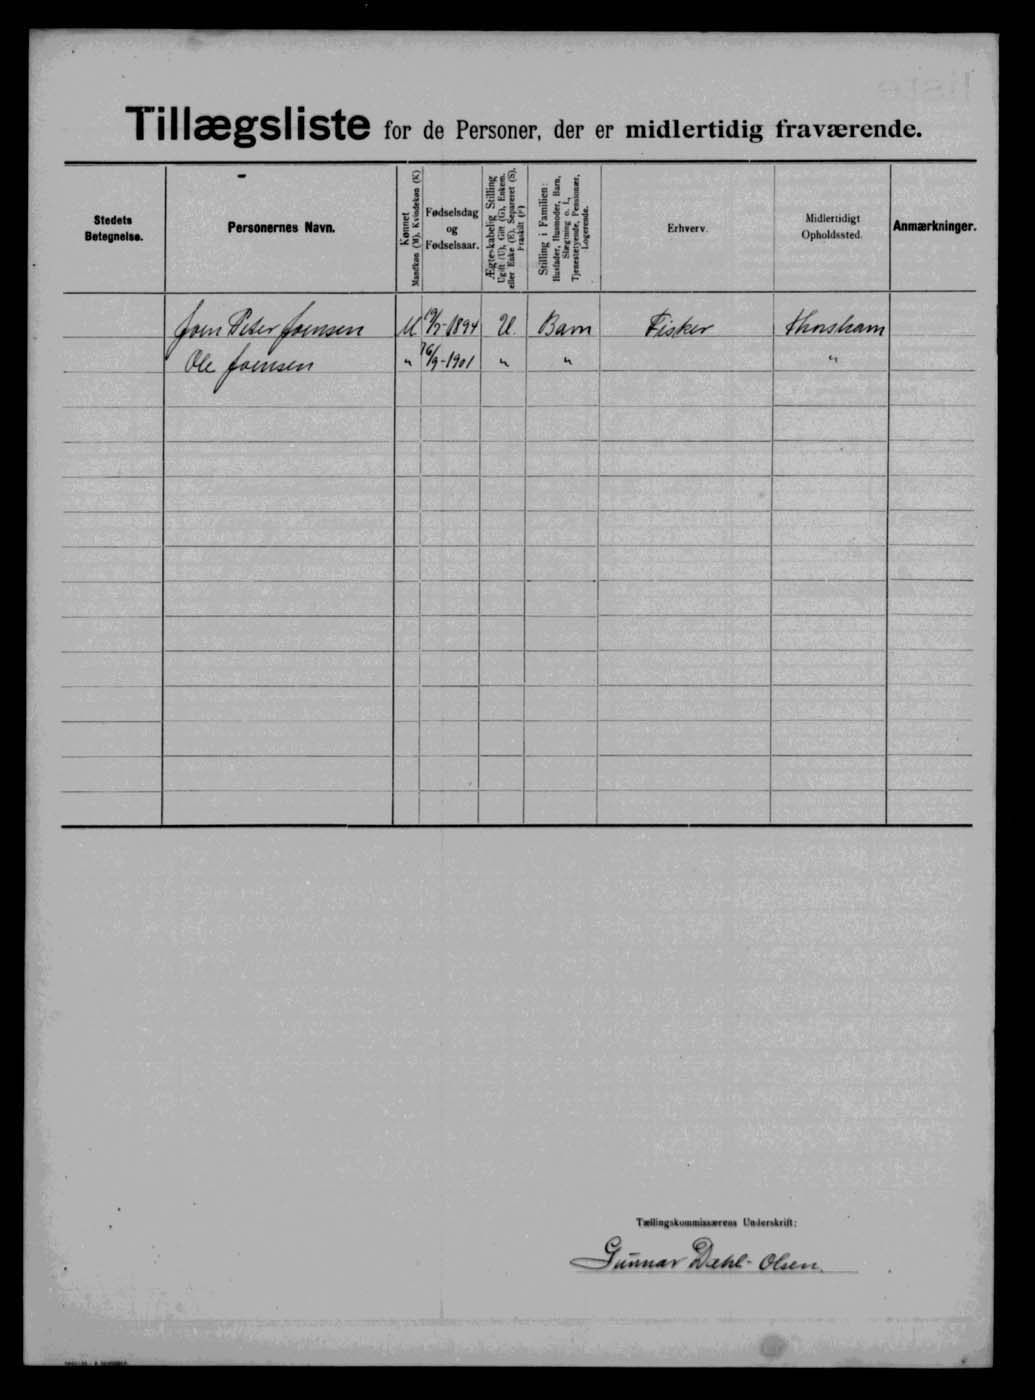 Tillægsliste for de Personer, der er midlertidig fraværende.
Stedets Betegnelse.
Personernes Navn.
Kønnet
Mandkøn (M), Kvindekøn (K)
Fødselsdag
og
Fødselsaar.
Ægteskabelig Stilling
Ugift (U), Gift (G), Enkem. eller Enke (E), Separeret (S), Fraskilt (F)
Stilling i Familien:
Husfader, Husmoder, Barn, Slægtning o. l., Tjenestetyende, Pensionær, Logerende.
Erhverv.
Midlertidigt
Opholdssted.
Anmærkninger.
Joen Peter Joensen M 19/7-1894 U. Barn Fisker Thorshavn
Ole Joensen " 16/9-1901 " " "
Tællingskommissærens Underskrift:
Gunnar Dahl-Olsen.